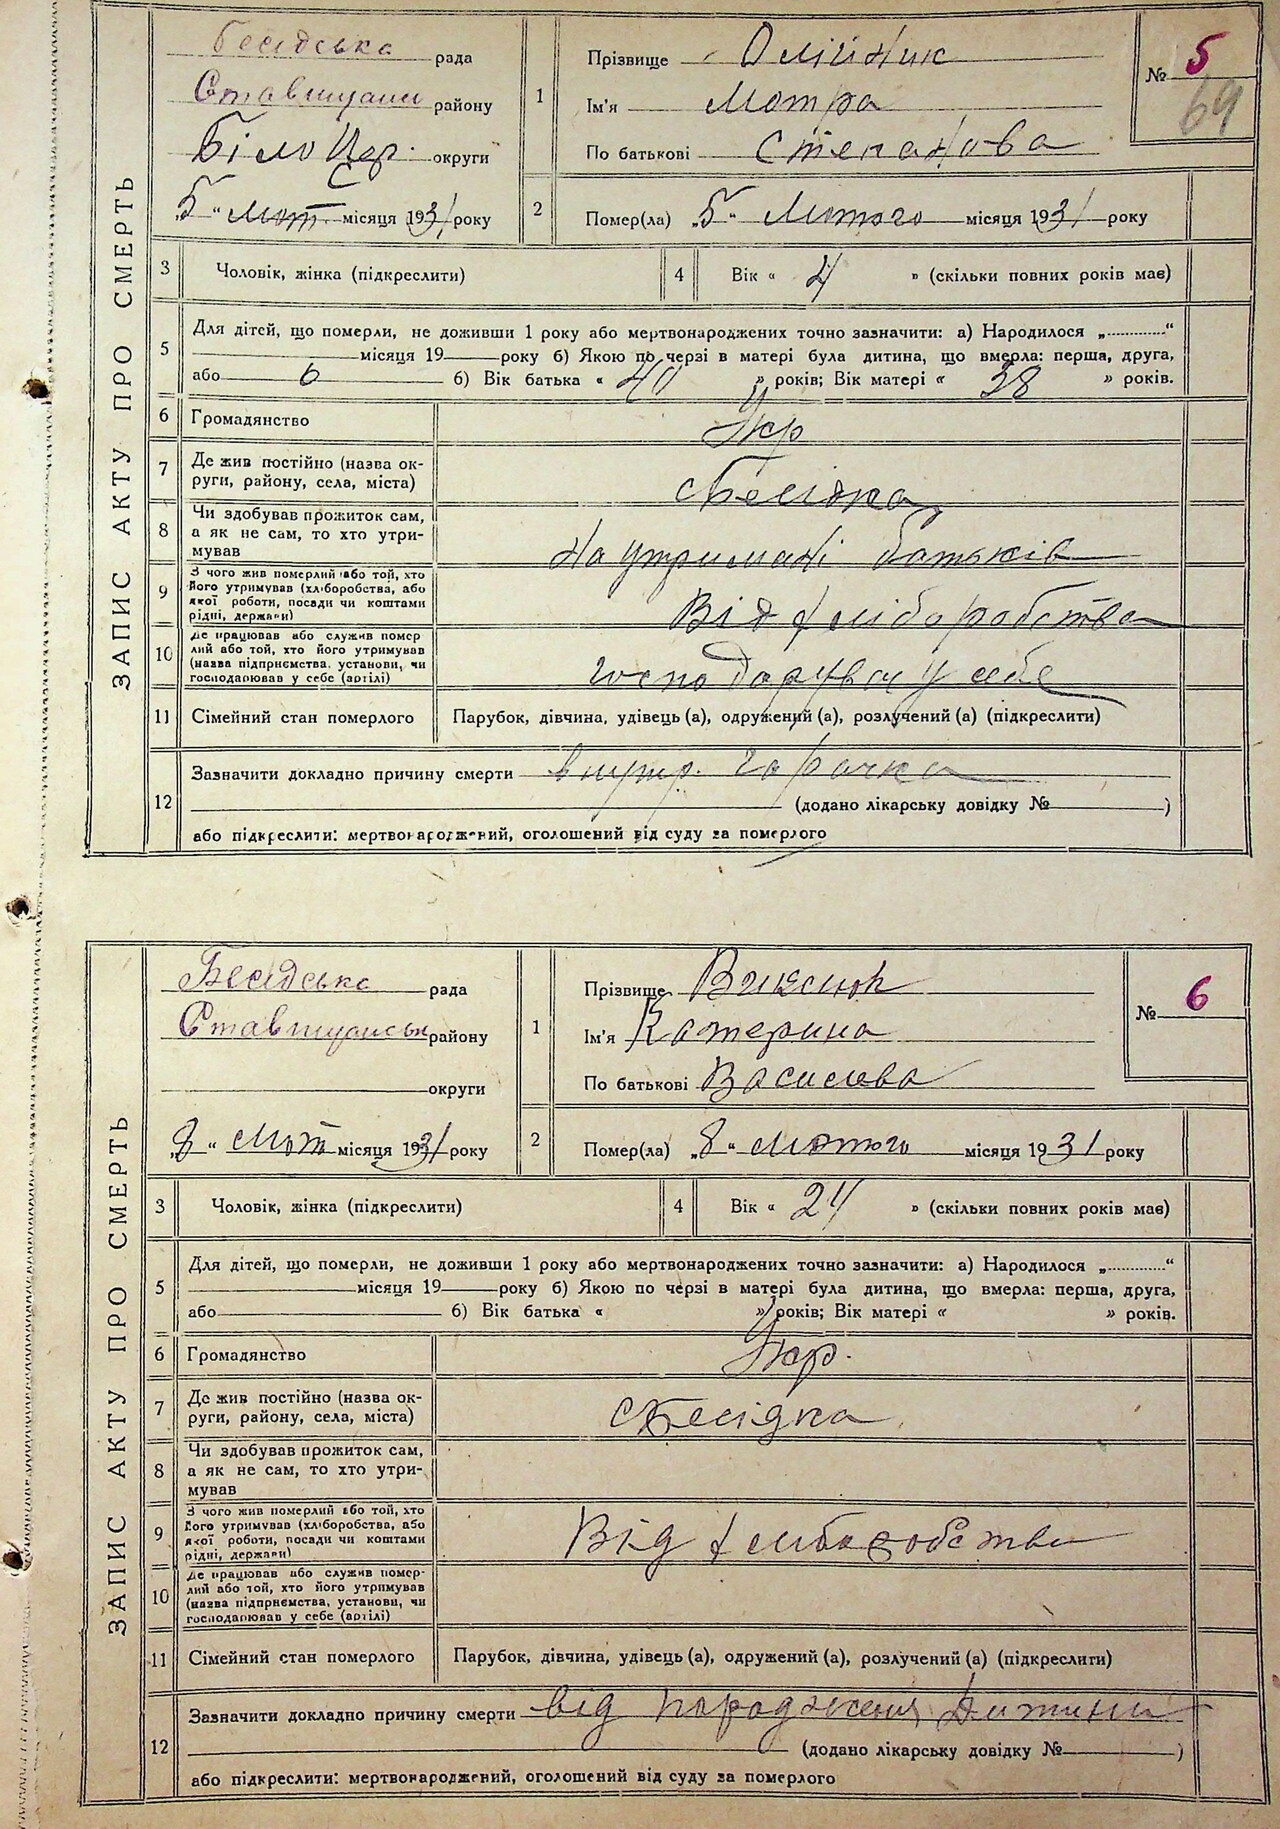 ЗАПИС АКТУ ПРО СМЕРТЬ
Бесідська рада
Ставищан району
БілоЦер. округи
„5“ лют. місяця 1931 року
1
Прізвище Олійник
Ім'я Мотра
По батькові Степанова
№ 5
69
2
Помер(ла) „5“ Лютого місяця 1931 року
3 Чоловік, жінка (підкреслити)
4 Вік « 4 » (скільки повних років має)
5 Для дітей, що померли, не доживши 1 року або мертвонароджених точно зазначити: а) Народилося „.............“
місяця 19 року б) Якою по черзі в матері була дитина, що вмерла: перша, друга,
або 6 б) Вік батька « 40 » років; Вік матері « 38 » років.
6 Громадянство Укр
7 Де жив постійно (назва ок-
руги, району, села, міста) с Бесідка
8 Чи здобував прожиток сам,
а як не сам, то хто утри-
мував на утримані батьків
9 З чого жив померлий або той, хто
його утримував (хліборобства, або
якої роботи, посади чи коштами
рідні, держави) Від хліборобства
10 Де працював або служив помер
лий або той, хто його утримував
(назва підприємства, установи, чи
господарював у себе (артілі) господарував у себе
11 Сімейний стан померлого Парубок, дівчина, удівець (а), одружений (а), розлучений (а) (підкреслити)
12 Зазначити докладно причину смерти внутр. горячка
(додано лікарську довідку № )
або підкреслити: мертвонароджений, оголошений від суду за померлого
ЗАПИС АКТУ ПРО СМЕРТЬ
Бесідська рада
Ставищанськ району
округи
„8“ Лют місяця 1931 року
1
Прізвище
Ім'я Катерина
По батькові Василева
№ 6
2
Помер(ла) „8“ лютого місяця 1931 року
3 Чоловік, жінка (підкреслити)
4 Вік « 24 » (скільки повних років має)
5 Для дітей, що померли, не доживши 1 року або мертвонароджених точно зазначити: а) Народилося „.............“
місяця 19 року б) Якою по черзі в матері була дитина, що вмерла: перша, друга,
або б) Вік батька « » років; Вік матері « » років.
6 Громадянство Укр.
7 Де жив постійно (назва ок-
руги, району, села, міста) с Бесідка
8 Чи здобував прожиток сам,
а як не сам, то хто утри-
мував
9 З чого жив померлий або той, хто
його утримував (хліборобства, або
якої роботи, посади чи коштами
рідні, держави) Від хліборобства
10 Де працював або служив помер-
лий або той, хто його утримував
(назва підприємства, установи, чи
господарював у себе (артілі)
11 Сімейний стан померлого Парубок, дівчина, удівець (а), одружений (а), розлучений (а) (підкреслити)
12 Зазначити докладно причину смерти від породження Дитини
(додано лікарську довідку № )
або підкреслити: мертвонароджений, оголошений від суду за померлого